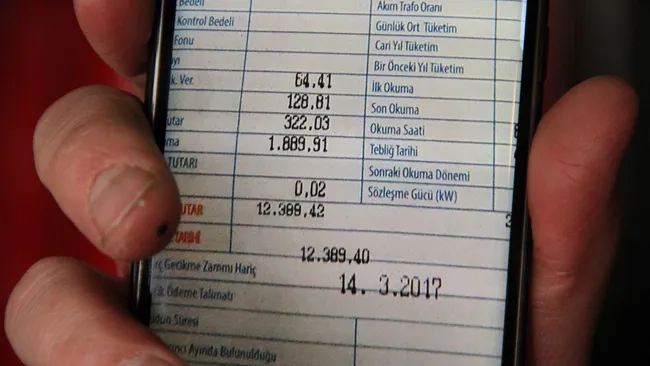 Bedeli
Kontrol Bedeli
Fonu
k. Ver. 64,41
128,81
utar 322,03
1.889,91
TUTARI
0,02
TUTAR 12.389,42
TARİHİ
12.389,40
Gecikme Zammı Hariç
14. 3.2017
Ödeme Talimatı
Süresi
Ayında Bulunulduğu
Akım Trafo Oranı
Günlük Ort Tüketim
Cari Yıl Tüketim
Bir Önceki Yıl Tüketim
İlk Okuma
Son Okuma
Okuma Saati
Tebliğ Tarihi
Sonraki Okuma Dönemi
Sözleşme Gücü (kW)